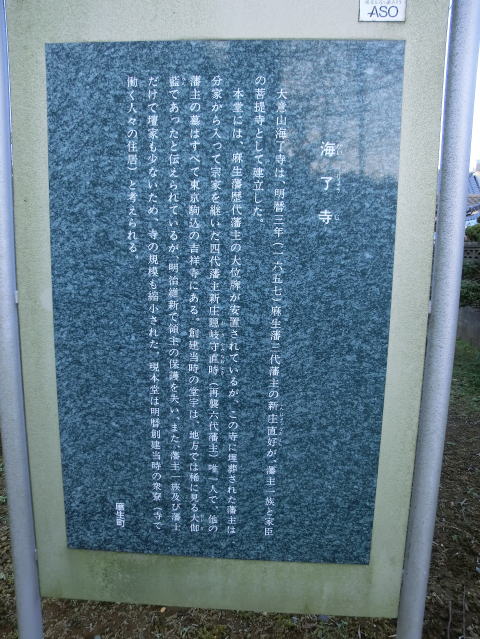 ASO
海了寺
大意山海了寺は、明暦三年(一六五七)麻生藩三代藩主の新庄直好が、藩主一族と家臣
の菩提寺として建立した。
本堂には、麻生藩歴代藩主の大位牌が安置されているが、この寺に埋葬された藩主は
分家から入って宗家を継いだ四代藩主新庄隠岐守直時(再襲六代藩主)唯一人で、他の
藩主の墓はすべて東京駒込の吉祥寺にある。創建当時の堂宇は、地方では稀に見る大伽
藍であったと伝えられているが、明治維新で領主の保護を失い、また、藩主一族及び藩士
だけで壇家も少ないため、寺の規模も縮小された。現本堂は明暦創建当時の衆寮(寺で
働く人々の住居)と考えられる
麻生町